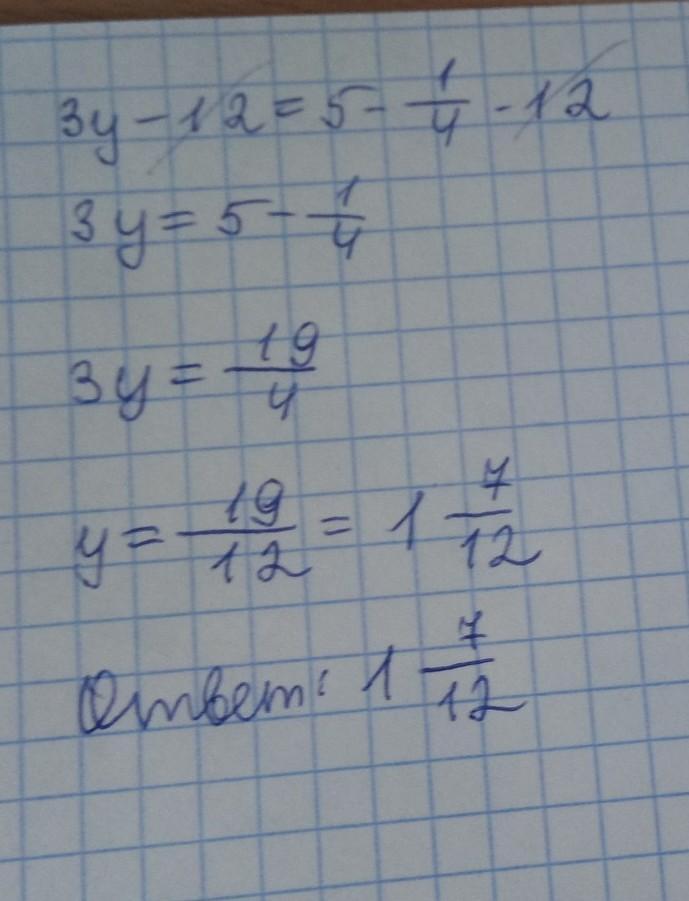 3y - 12 = 5 - 1/4 - 12
3y = 5 - 1/4
3y = 19/4
y = 19/12 = 1 7/12
Ответ: 1 7/12